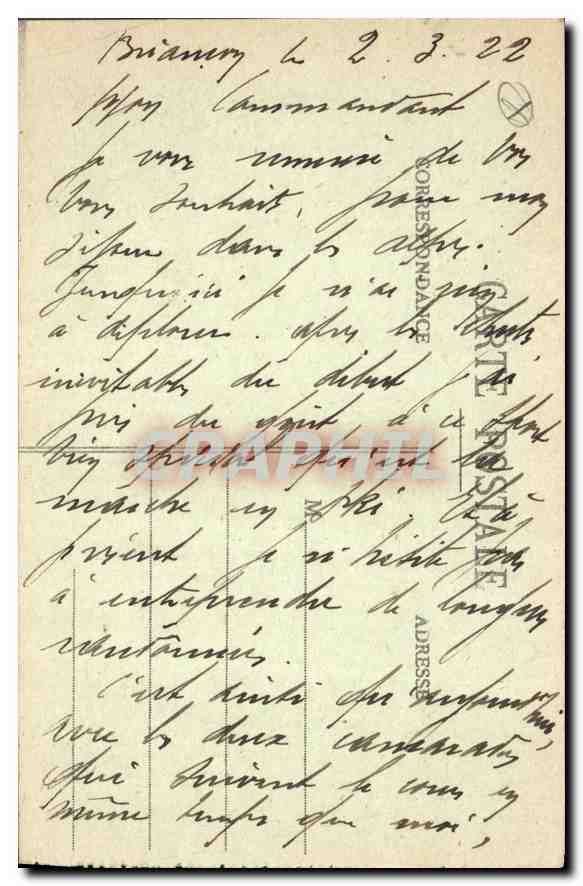 Briançon le 2. 3. 22
Mon Commandant
Je vous remercie de vos
bons souhaits, pour mon
séjour dans les alpes.
Jusqu'ici je n'ai rien
à déplorer. après les chutes
inévitables du début j'ai
pris du goût à ce sport
bien spécial qu'est la
marche en ski. Et à
présent je n'hésite pas
à entreprendre de longues
randonnées.
C'est ainsi qu'aujourd'hui,
avec les deux camarades
qui suivent le cours en
même temps que moi,
CORRESPONDANCE
CARTE POSTALE
M
ADRESSE
CPAPHIL